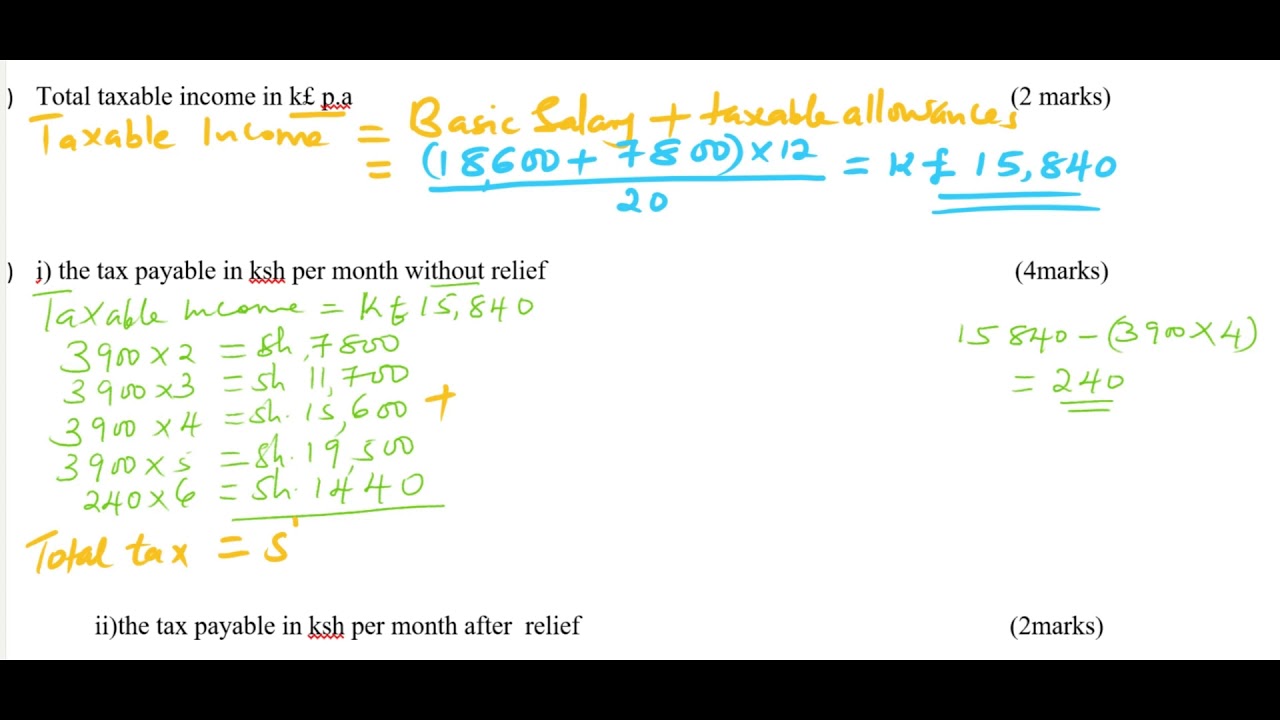 ) Total taxable income in k£ p.a (2 marks)
Taxable Income = Basic Salary + taxable allowances
= (18,600 + 7800) × 12 = K£ 15,840
20
) i) the tax payable in ksh per month without relief (4marks)
Taxable income = K£ 15,840
3900 × 2 = Sh, 7800
3900 × 3 = Sh 11,700
3900 × 4 = Sh. 15,600 +
3900 × 5 = Sh. 19,500
240 × 6 = Sh. 1440
15 840 – (3900 × 4)
= 240
Total tax = s
ii)the tax payable in ksh per month after relief (2marks)